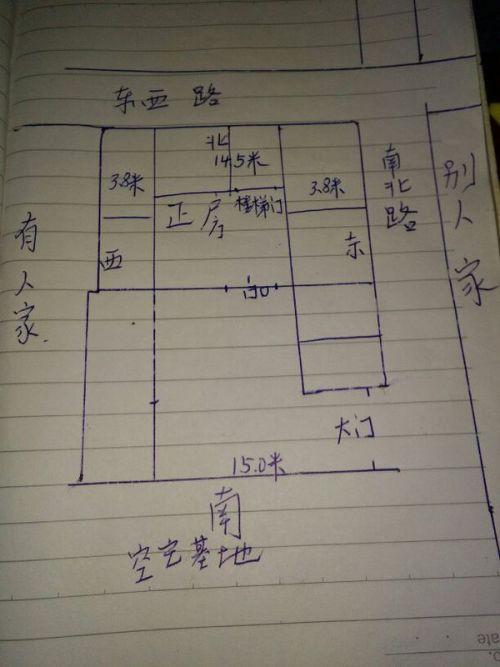 东西路
北
14.5米
3.8米
3.8米
南北路
别人家
正房
楼梯门
有人家
西
东
门口
大门
15.0米
南
空宅基地